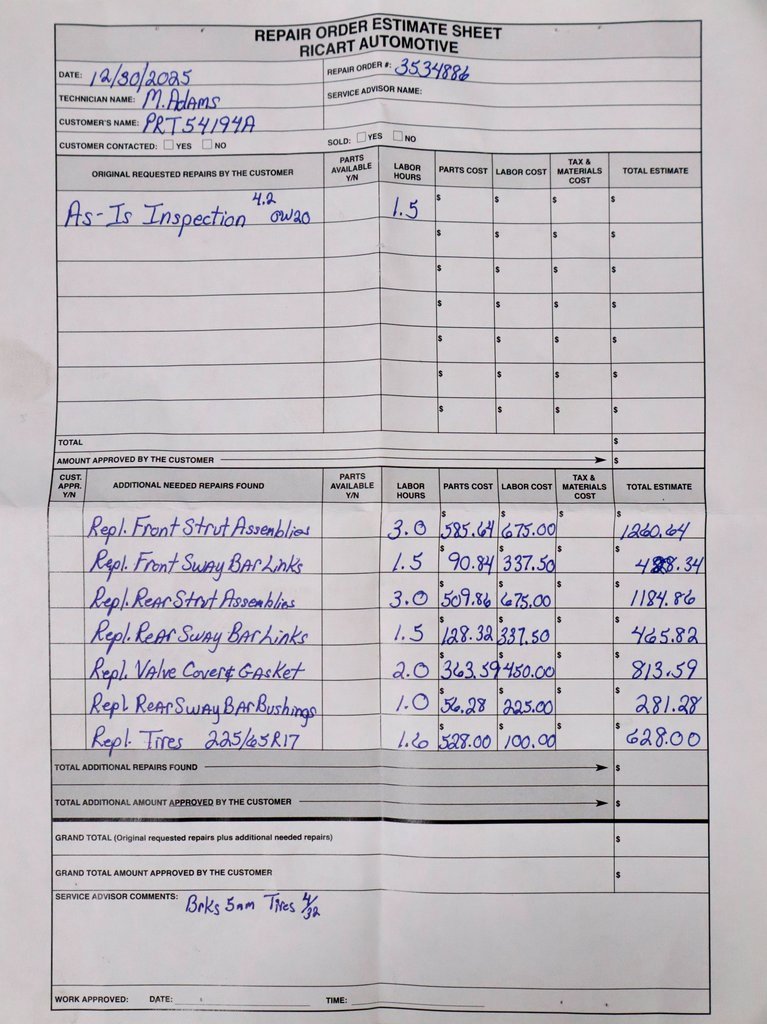 REPAIR ORDER ESTIMATE SHEET
RICART AUTOMOTIVE
DATE: 12/30/2025
REPAIR ORDER #: 3534886
TECHNICIAN NAME: M. Adams
SERVICE ADVISOR NAME:
CUSTOMER'S NAME: PRT54194A
CUSTOMER CONTACTED: YES NO
SOLD: YES NO
ORIGINAL REQUESTED REPAIRS BY THE CUSTOMER PARTS AVAILABLE Y/N LABOR HOURS PARTS COST LABOR COST TAX & MATERIALS COST TOTAL ESTIMATE
As-Is Inspection 4.2 0W20 1.5 $ $ $ $
$ $ $ $
$ $ $ $
$ $ $ $
$ $ $ $
$ $ $ $
$ $ $ $
TOTAL $
AMOUNT APPROVED BY THE CUSTOMER $
CUST. APPR. Y/N ADDITIONAL NEEDED REPAIRS FOUND PARTS AVAILABLE Y/N LABOR HOURS PARTS COST LABOR COST TAX & MATERIALS COST TOTAL ESTIMATE
Repl. Front Strut Assemblies 3.0 $585.64 $675.00 $ $1260.64
Repl. Front Sway Bar Links 1.5 $90.84 $337.50 $ $428.34
Repl. Rear Strut Assemblies 3.0 $509.86 $675.00 $ $1184.86
Repl. Rear Sway Bar Links 1.5 $128.32 $337.50 $ $465.82
Repl. Valve Cover & Gasket 2.0 $363.59 $450.00 $ $813.59
Repl Rear Sway Bar Bushings 1.0 $56.28 $225.00 $ $281.28
Repl. Tires 225/65R17 1.6 $528.00 $100.00 $ $628.00
TOTAL ADDITIONAL REPAIRS FOUND $
TOTAL ADDITIONAL AMOUNT APPROVED BY THE CUSTOMER $
GRAND TOTAL (Original requested repairs plus additional needed repairs) $
GRAND TOTAL AMOUNT APPROVED BY THE CUSTOMER $
SERVICE ADVISOR COMMENTS: Brks 5mm Tires 4/32
WORK APPROVED: DATE: TIME: